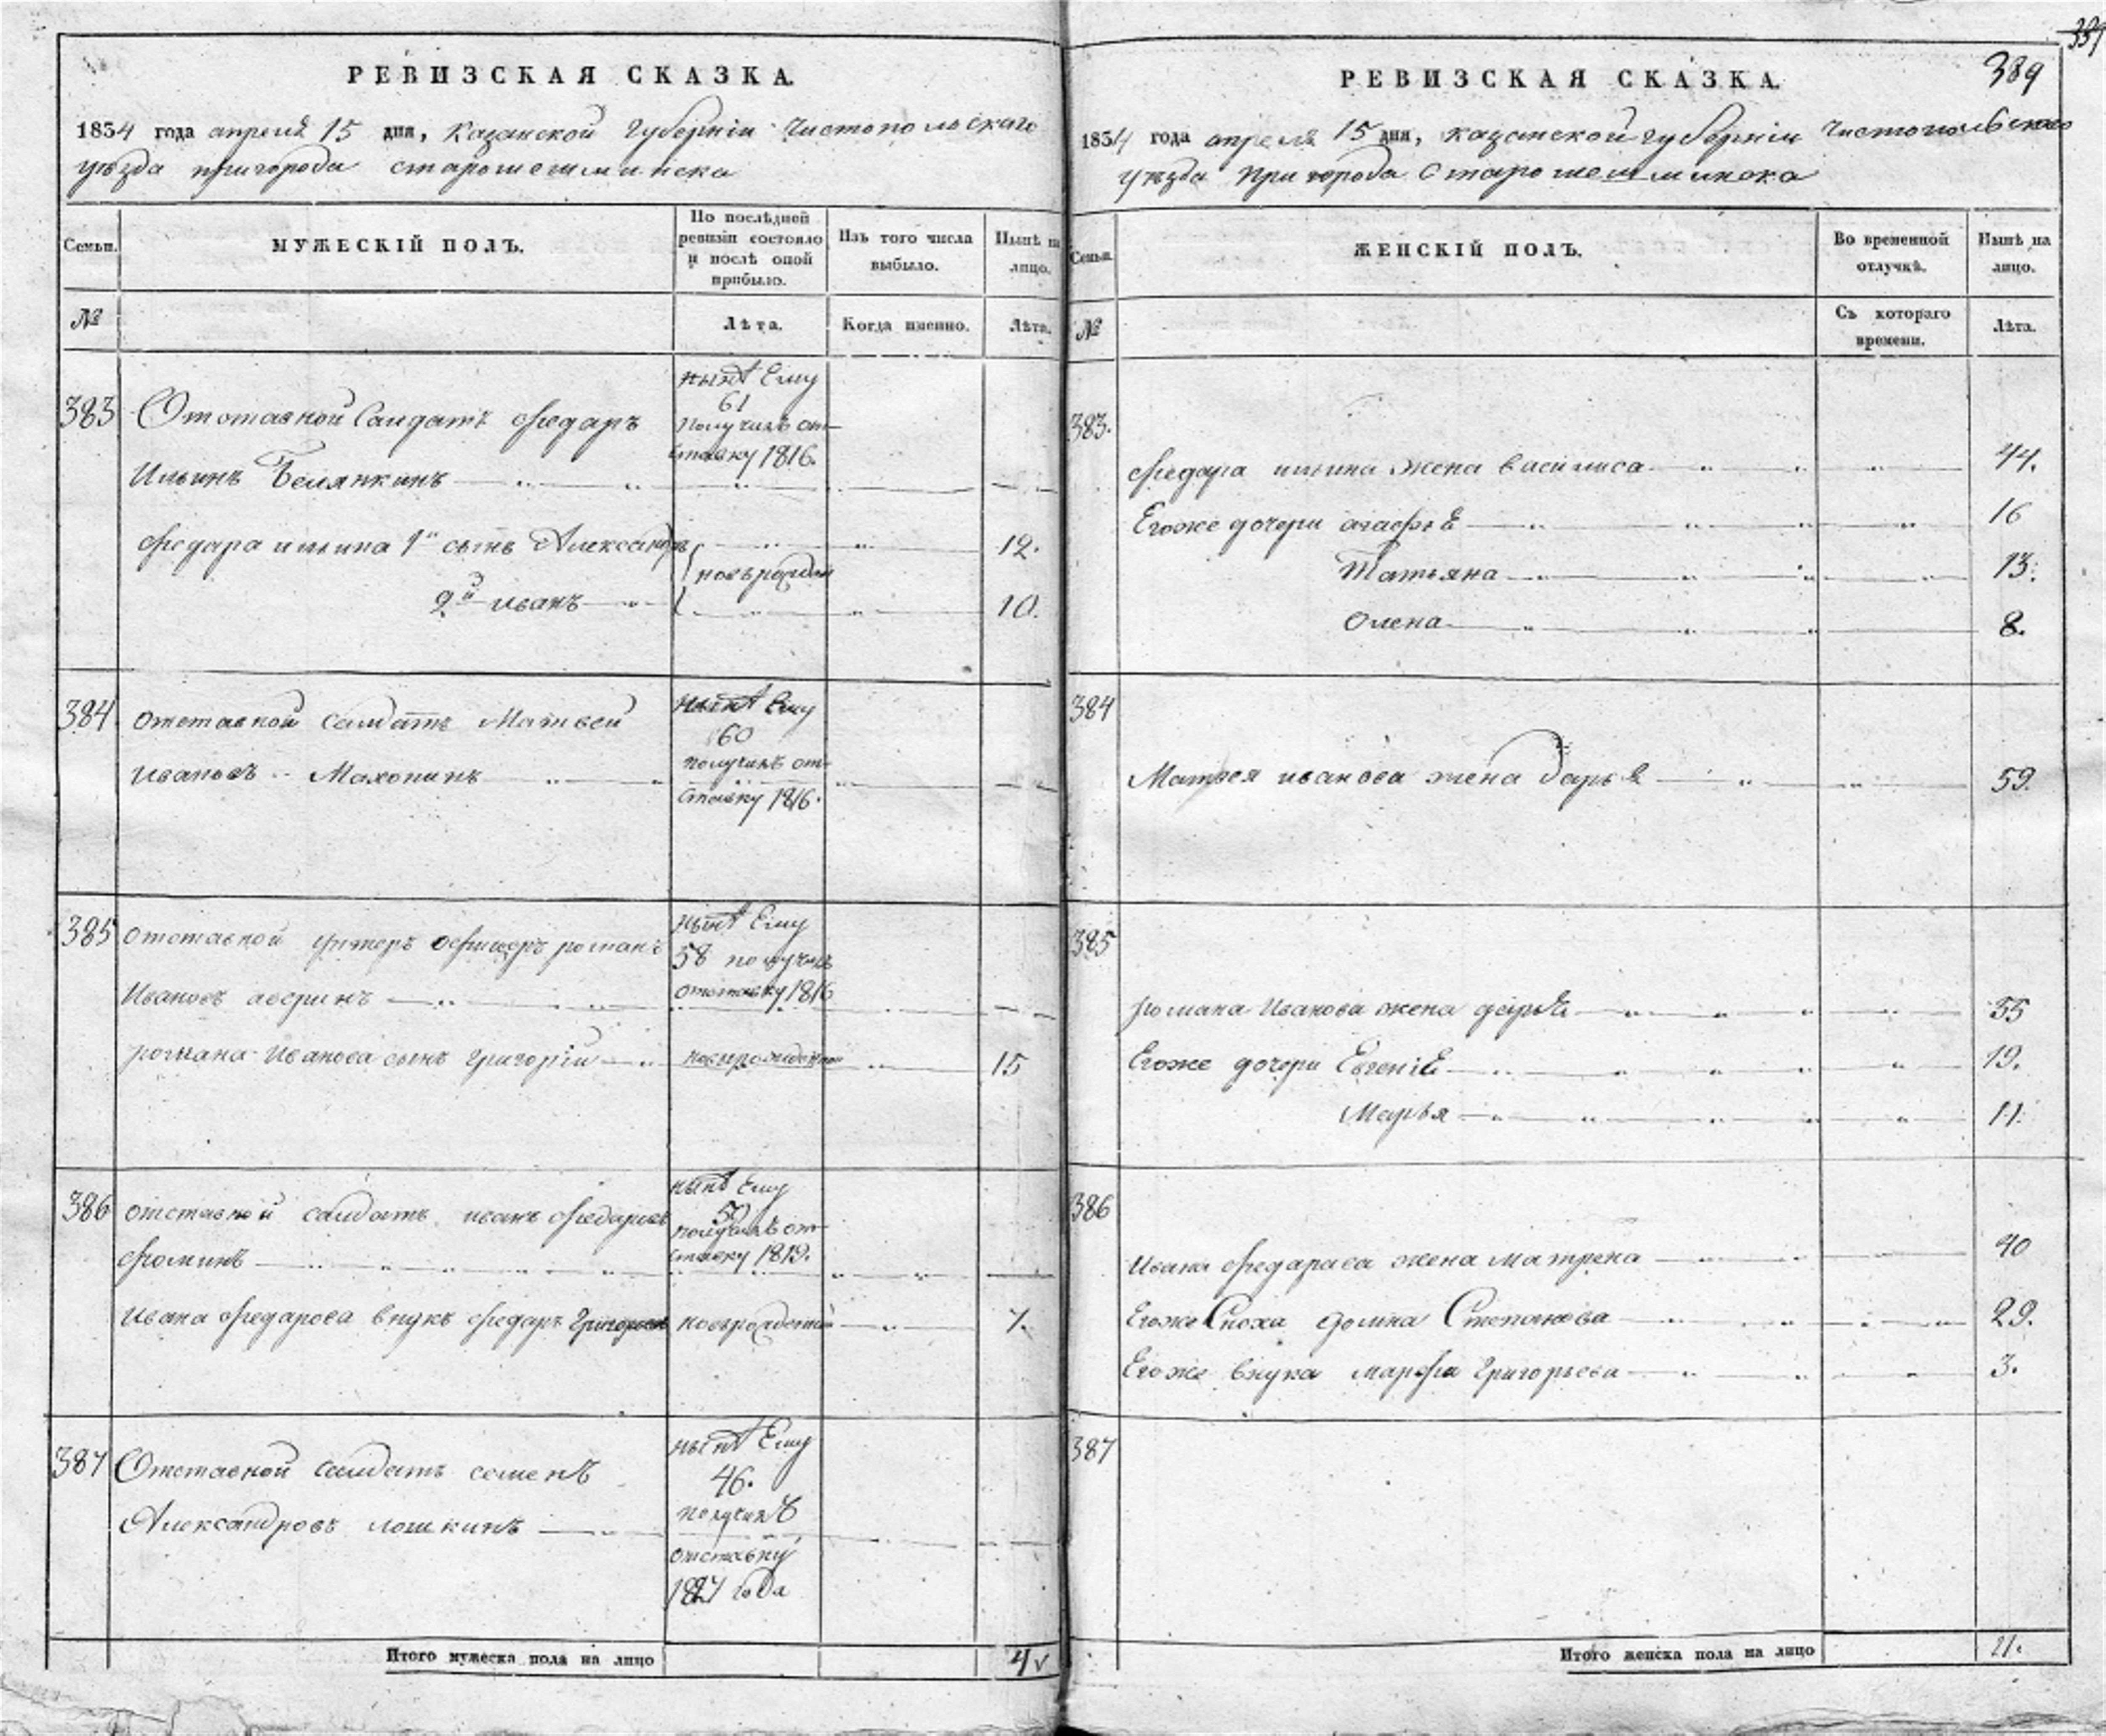 РЕВИЗСКАЯ СКАЗКА.
1834 года апреля 15 дня, Казанской Губернiи Чистопольскаго
уѣзда пригорода старошешминска
Семьи.
МУЖЕСКIЙ ПОЛЪ.
По послѣдней ревизiи состояло и послѣ оной прибыло.
Изъ того числа выбыло.
Нынѣ на лицо.
№
Лѣта.
Когда именно.
Лѣта.
383
Отставной Салдатъ Федаръ
Ильинъ Белянкинъ
нынѣ Ему
61
Получилъ от-
ставку 1816.
Федара ильина 1й сынъ Александръ
12.
новърожден
2й иванъ
10.
384
отставной салдатъ Матвей
ивановъ Махонинъ
нынѣ Ему
60
получилъ от-
ставку 1816.
385
отставной унтеръ офицеръ романъ
Ивановъ аверинъ
нынѣ Ему
58 получилъ
отставку 1816
романа Иванова сынъ григорiй
новърожденной
15
386
отставной салдатъ иванъ федаровъ
фоминъ
нынѣ Ему
50
получилъ от-
ставку 1819.
Ивана федарова внукъ федаръ Григорьевъ
новърожденный
7.
387
Отставной салдатъ семенъ
Александровъ лошкинъ
нынѣ Ему
46.
получилъ
отставку
1827 года
Итого мужеска пола на лицо
4
389
389
РЕВИЗСКАЯ СКАЗКА.
1834 года апреля 15 дня, казанской губернiи Чистопольскаго
уѣзда Пригорода Старошешминска
Семьи.
ЖЕНСКIЙ ПОЛЪ.
Во временной отлучкѣ.
Нынѣ на лицо.
№
Съ котораго времени.
Лѣта.
383.
Федара ильина жена василиса
44.
Егоже дочери агафья
16
Татьяна
13.
Олена
8.
384
Матвея иванова жена дарья
59.
385
романа Иванова жена дарья
55
Егоже дочери Евгенiя
19.
Марья
11.
386
Ивана федарава жена матрена
40
Егоже Сноха домна Степанова
29.
Егоже внука марфа григорьева
3.
387
Итого женска пола на лицо
11.